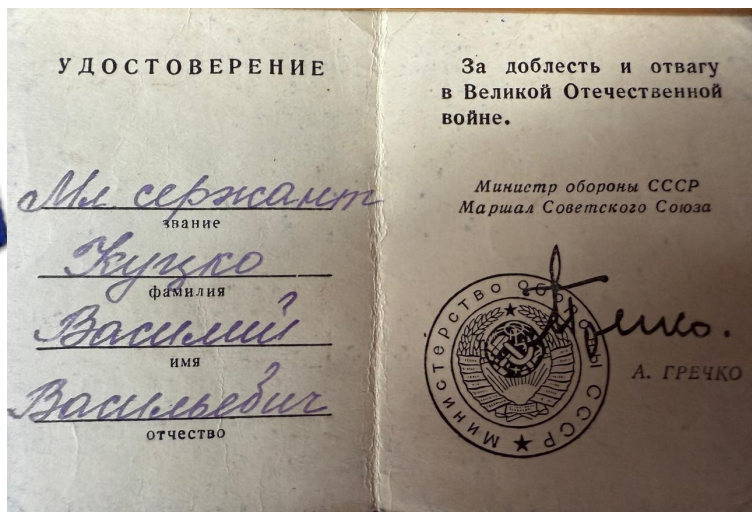 УДОСТОВЕРЕНИЕ
Мл. сержант
звание
Куцко
фамилия
Василий
имя
Васильевич
отчество
За доблесть и отвагу
в Великой Отечественной
войне.
Министр обороны СССР
Маршал Советского Союза
Министерство Обороны СССР
А. ГРЕЧКО